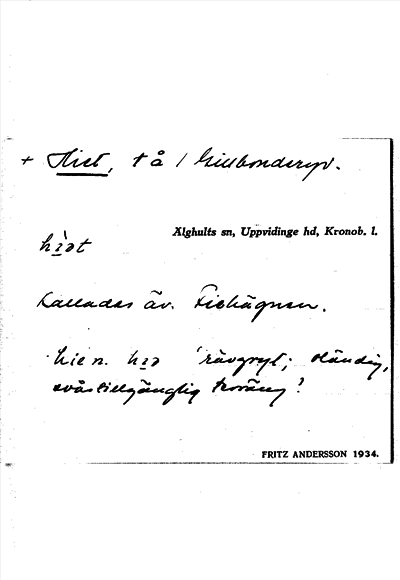 + Hiet, tå / Gillbonderyd.
Älghults sn, Uppvidinge hd, Kronob. l.
Kallades äv. Fiehägnen.
hie n. 'rävgryt; eländig,
svårtillgänglig terräng'?
FRITZ ANDERSSON 1934.